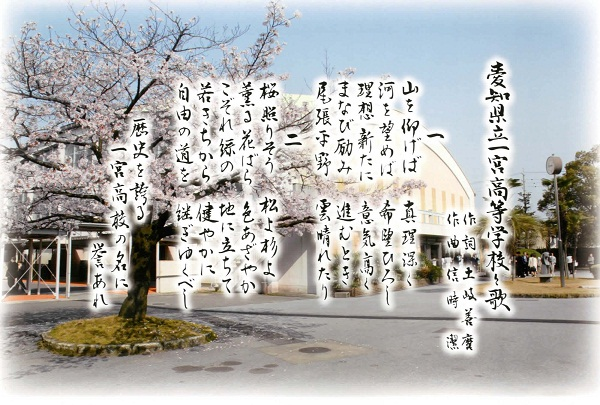 愛知県立一宮高等学校々歌
作詞 土岐善麿
作曲 信時 潔
一
山を仰げば 真理深く
河を望めば 希望ひろし
理想新たに 意気高く
まなび励み 進むとき
尾張平野 雲晴れたり
二
桜照りそう 松よ杉よ
薫る花ばら 色あざやか
こぞれ緑の 地に立ちて
若きちから 健やかに
自由の道を 継ぎゆくべし
歴史を誇る
一宮高校の名に 誉あれ